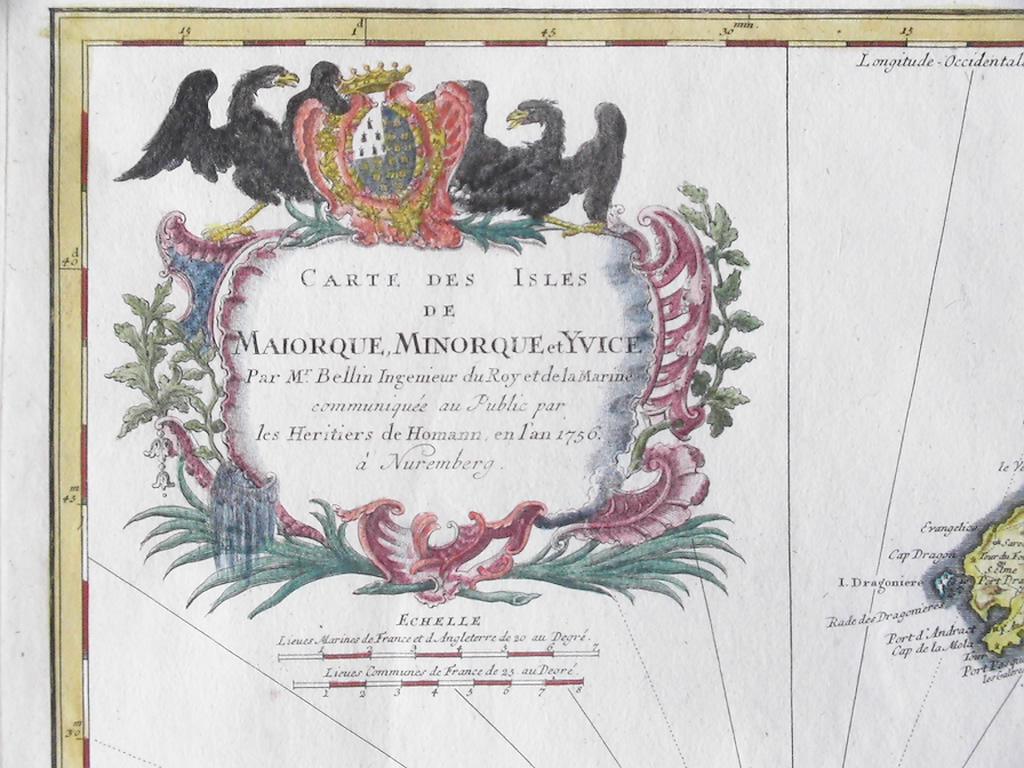 15 1d 45 30 min. 15
Longitude-Occidentale
CARTE DES ISLES
DE
MAIORQUE, MINORQUE et YVICE
Par Mr. Bellin Ingenieur du Roy et de la Marine
communiquée au Public par
les Heritiers de Homann, en l'an 1756.
à Nuremberg.
d
40
m
45
m
30
ECHELLE
Lieues Marines de France et d'Angleterre de 20 au Degré.
1 2 3 4 5 6 7
Lieues Communes de France de 25 au Degré
1 2 3 4 5 6 7 8
le
Evangelica
Cap Dragon
S. Elme
I. Dragoniere
Rade des Dragonieres
Port d'Andrac
Cap de la Mola